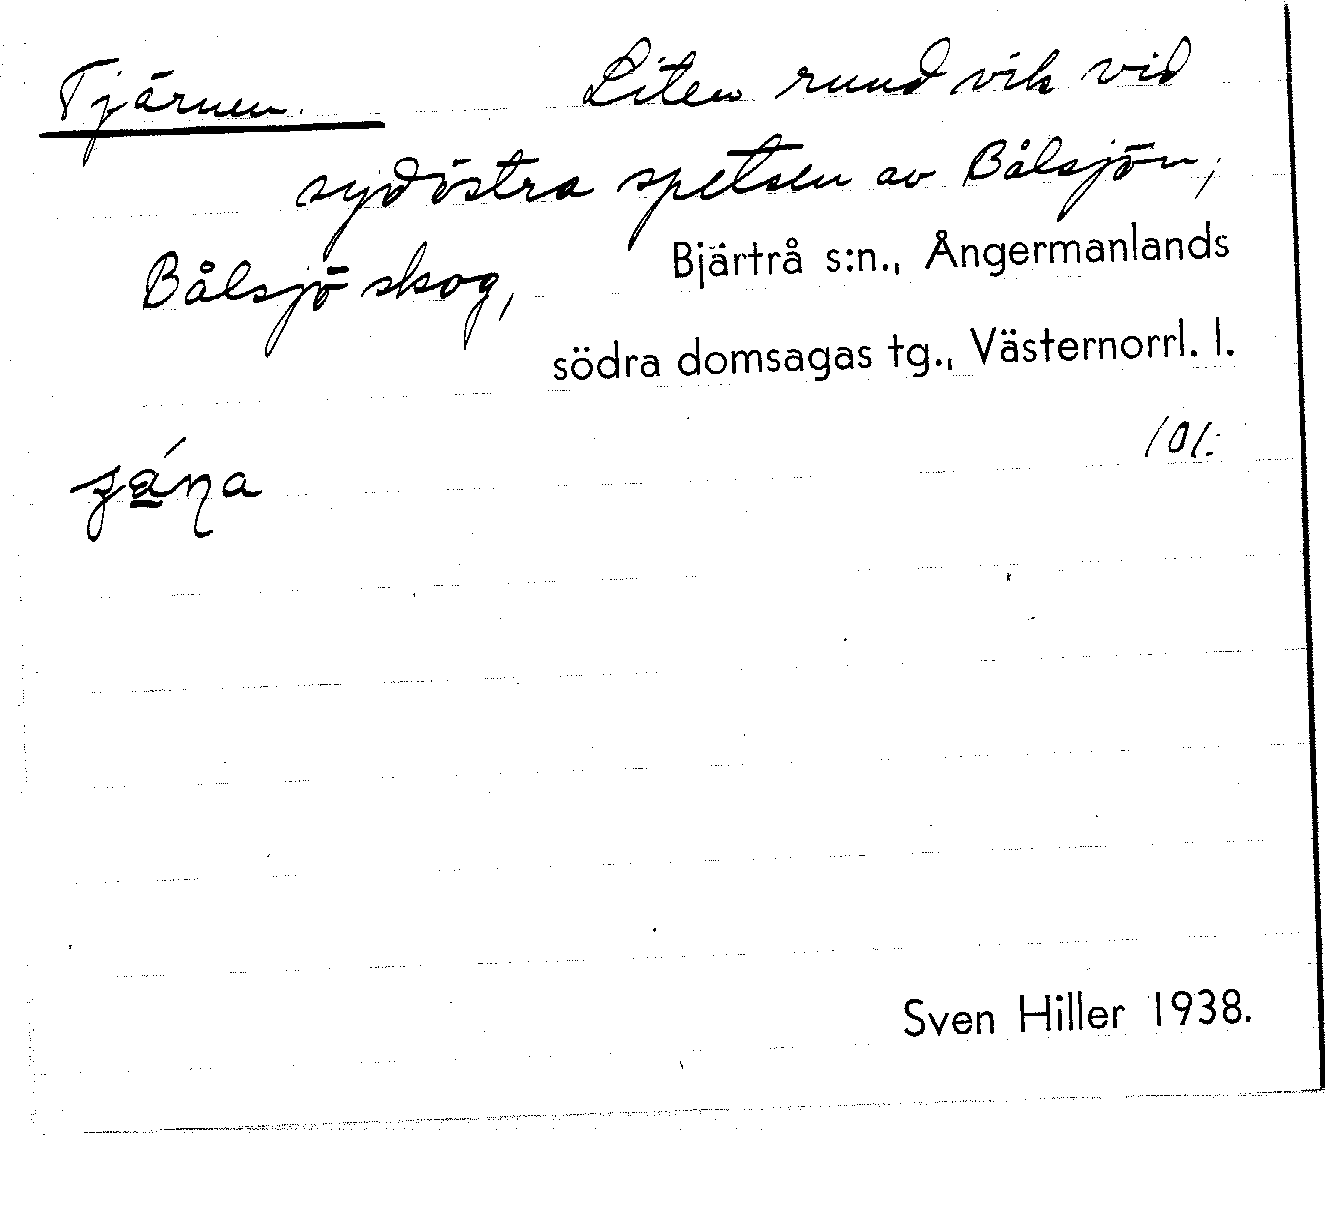 Tjärnen. Liten rund vik vid
sydöstra spetsen av Bålsjön,
Bålsjö skog, Bjärtrå s:n., Ångermanlands
södra domsagas tg., Västernorrl. l.
101:
Sven Hiller 1938.